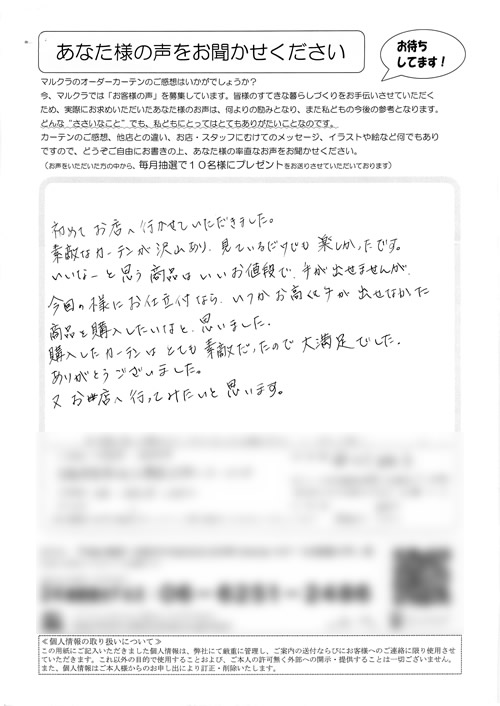 あなた様の声をお聞かせください
お待ち
してます!
マルクラのオーダーカーテンのご感想はいかがでしょうか?
今、マルクラでは「お客様の声」を募集しています。皆様のすてきな暮らしづくりをお手伝いさせていただく
ため、実際にお求めいただいたあなた様のお声は、何よりの励みとなり、また私どもの今後の参考となります。
どんな"ささいなこと"でも、私どもにとってはとてもありがたいことなのです。
カーテンのご感想、他店との違い、お店・スタッフにむけてのメッセージ、イラストや絵など何でもあり
ですので、どうぞご自由にお書きの上、あなた様の率直なお声をお聞かせください。
(お声をいただいた方の中から、毎月抽選で10名様にプレゼントをお送りさせていただいております)
初めてお店へ行かせていただきました。
素敵なカーテンが沢山あり、見ているだけでも楽しかったです。
いいなーと思う商品はいいお値段で、手が出せませんが、
今回の様にお仕立付なら、いつかお高くて手が出せなかた
商品を購入したいなと、思いました。
購入したカーテンはとても素敵だったので大満足でした。
ありがとうございました。
又お店へ行ってみたいと思います。
≪個人情報の取り扱いについて≫
この用紙にご記入いただきました個人情報は、弊社にて厳重に管理し、ご案内の送付ならびにお客様へのご連絡に限り使用させ
ていただきます。これ以外の目的で使用することおよび、ご本人の許可無く外部への開示・提供することは一切ございません。
また、個人情報はご本人様からのお申し出により訂正・削除いたします。